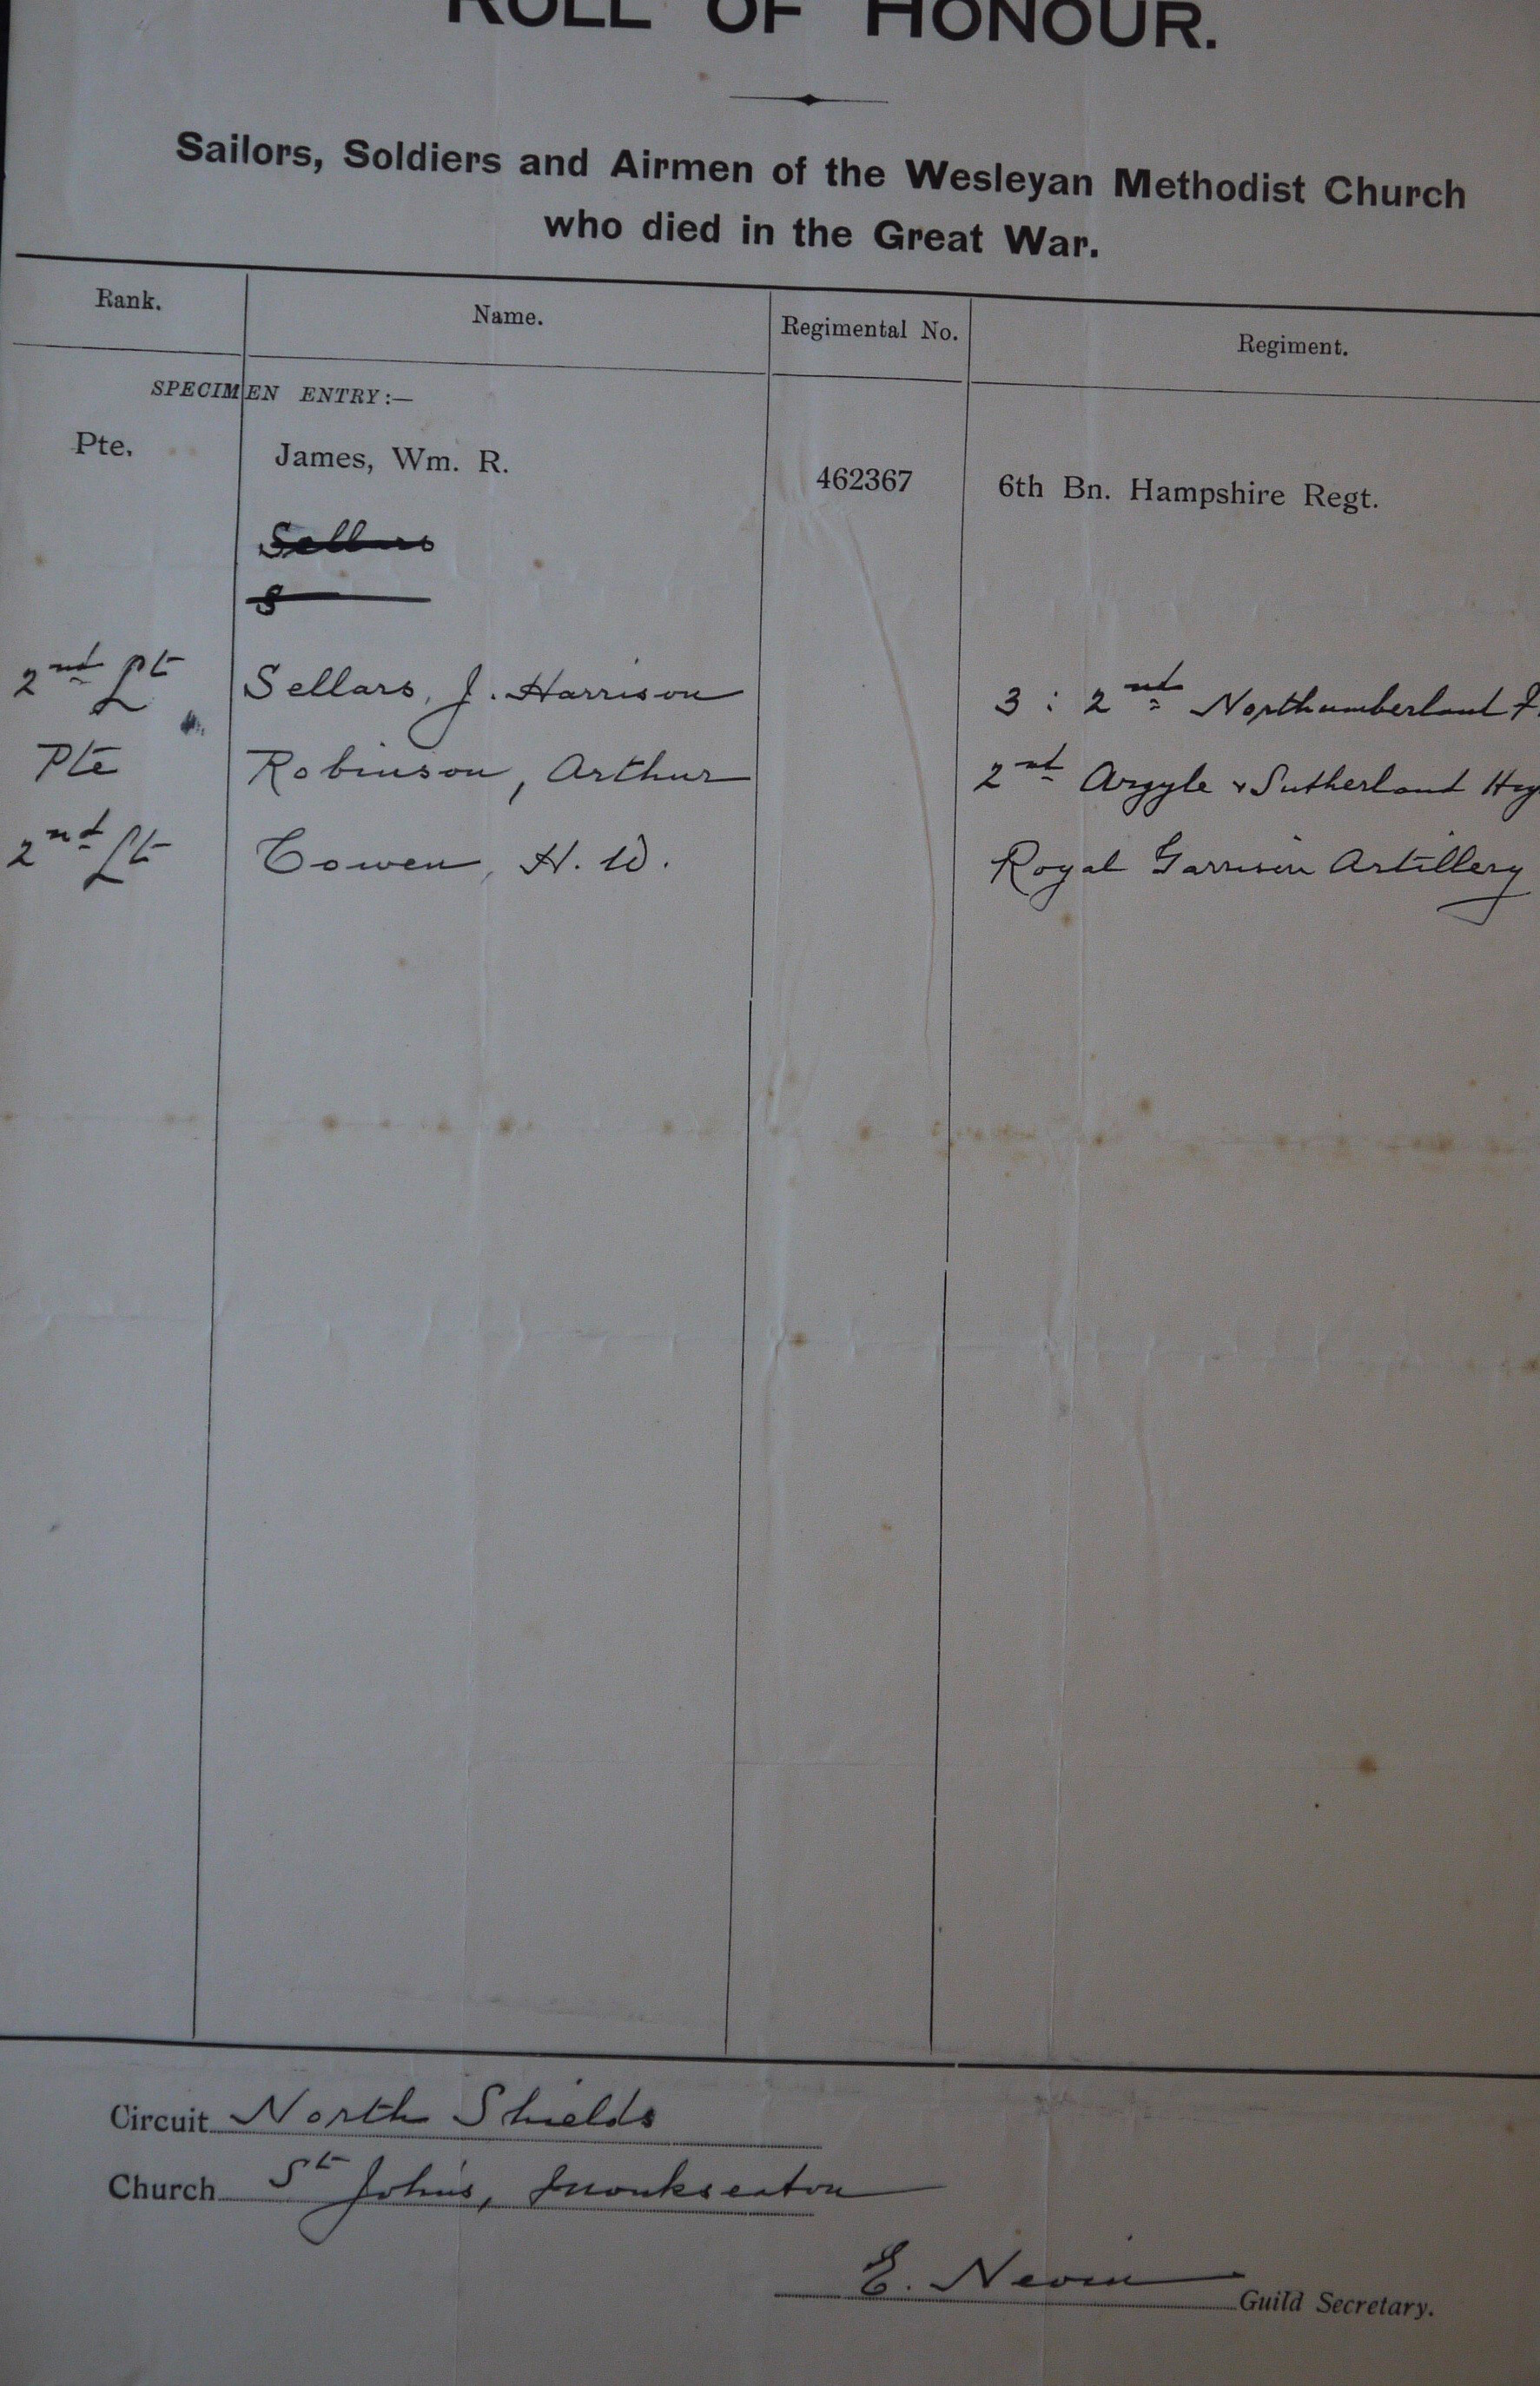 ROLL OF HONOUR.
Sailors, Soldiers and Airmen of the Wesleyan Methodist Church
who died in the Great War.
Rank. Name. Regimental No. Regiment.
SPECIMEN ENTRY:—
Pte. James, Wm. R. 462367 6th Bn. Hampshire Regt.
Sellars
S
2nd Lt Sellars, J. Harrison 3 : 2nd Northumberland F.
Pte Robinson, Arthur 2nd Argyle & Sutherland Hig
2nd Lt Cowen, H. W. Royal Garrison Artillery
Circuit North Shields
Church St John's, Monkseaton
E. Nevin Guild Secretary.